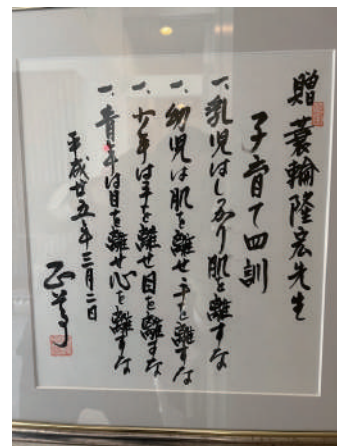 贈 蓑輪隆宏先生
子育て四訓
一、乳児はしっかり肌を離すな
一、幼児は肌を離せ手を離すな
一、少年は手を離せ目を離すな
一、青年は目を離せ心を離すな
平成廿五年三月二日